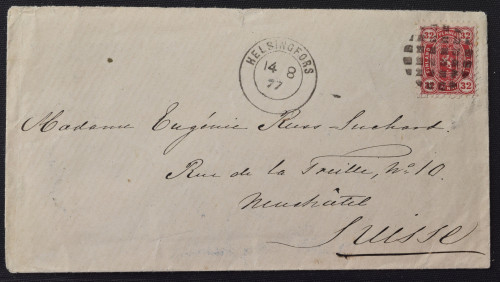 HELSINGFORS
14 8
77
32 32
32 32
Madame Eugénie Russ-Suchard.
Rue de la Treille, No 10.
Neuchâtel
Suisse